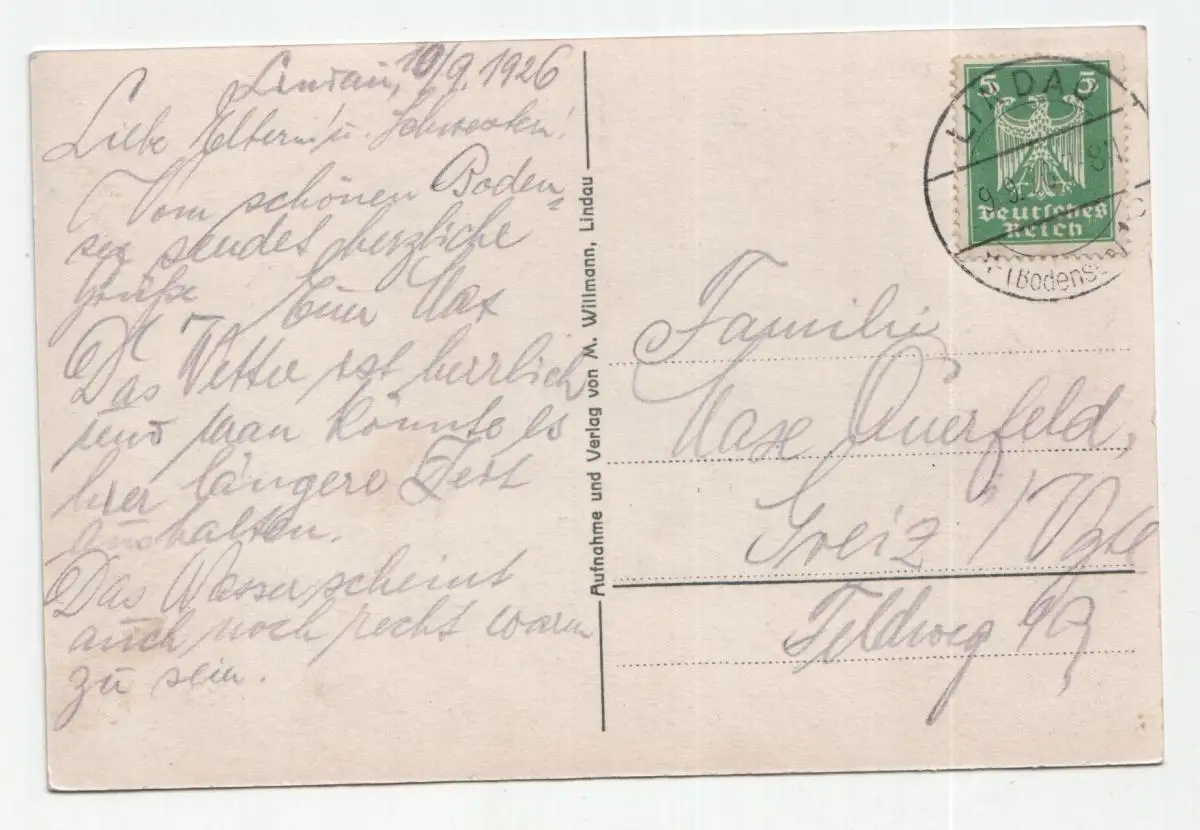 Lindau, 10/9.1926
Liebe Eltern u. Schwestern!
Vom schönen Boden-
see sendet herzliche
Grüße Euer Max
Das Wetter ist herrlich
und man könnte es
hier längere Zeit
aushalten.
Das Wasser scheint
auch noch recht warm
zu sein.
Aufnahme und Verlag von M. Willmann, Lindau
5 5
Deutsches
Reich
LINDAU
(Bodensee)
Familie
Max Querfeld,
Greiz / Vgtl
Feldweg